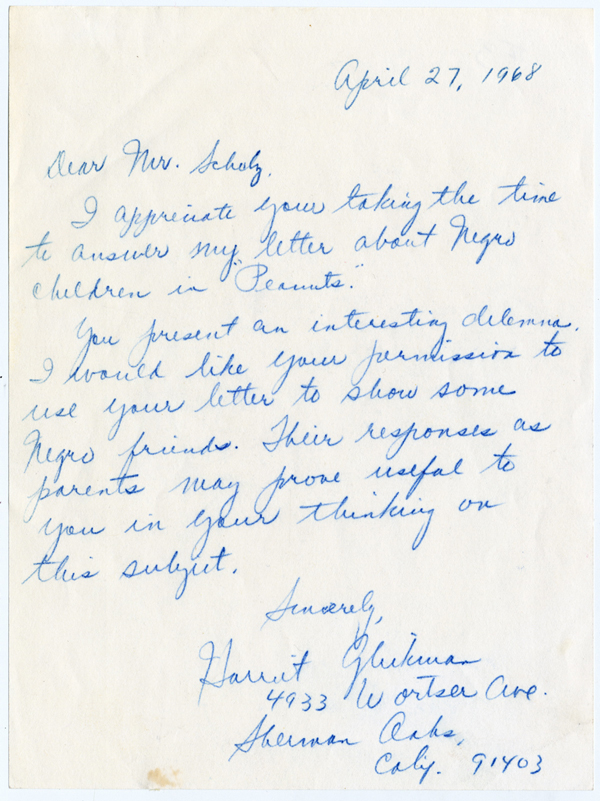 April 27, 1968
Dear Mr. Scholz,
I appreciate your taking the time
to answer my letter about Negro
children in "Peanuts."
You present an interesting dilemna.
I would like your permission to
use your letter to show some
Negro friends. Their responses as
parents may prove useful to
you in your thinking on
this subject.
Sincerely,
Harriet Glickman
4933 Wortser Ave.
Sherman Oaks,
Calif. 91403